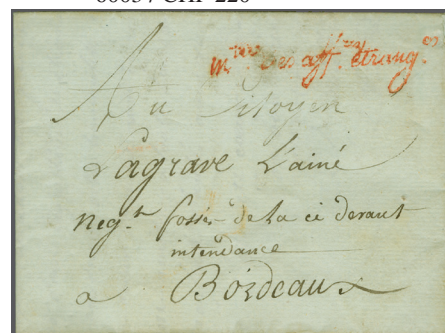 m.tre des aff.res étrang.es
Au Citoyen
Lagrave L'ainé
neg.t fossés de la ci devant
intendance
a Bordeaux